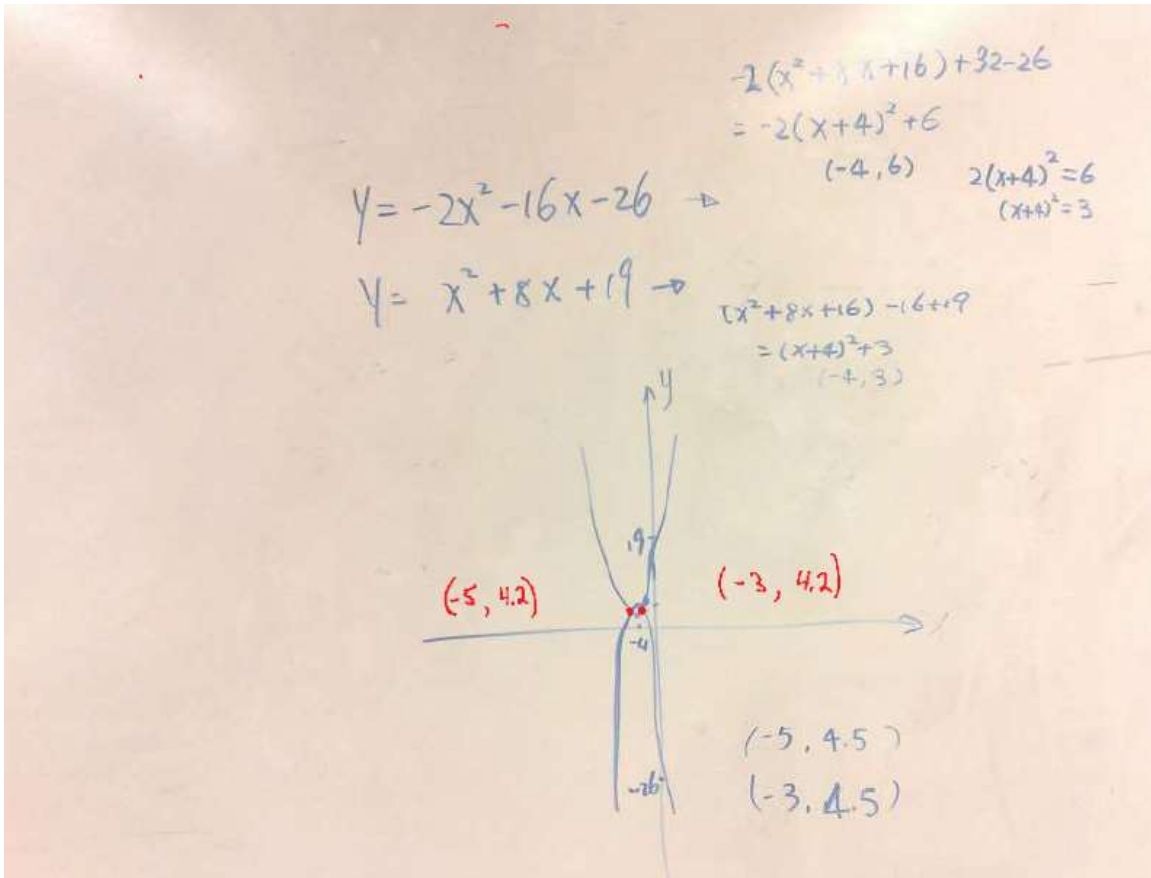 -2(x²+8x+16)+32-26
= -2(x+4)²+6
(-4,6)
2(x+4)²=6
(x+4)²=3
y=-2x²-16x-26 →
y= x²+8x+19 →
(x²+8x+16)-16+19
=(x+4)²+3
(-4,3)
y
19
(-5, 4.2)
(-3, 4.2)
x
-4
(-5, 4.5)
-26
(-3, 4.5)